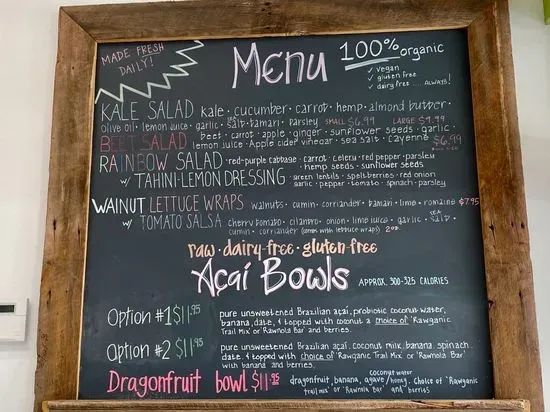 MADE FRESH
DAILY!
MENU
100% organic
✓ vegan
✓ gluten free
✓ dairy free .... ALWAYS!
KALE SALAD kale · cucumber · carrot · hemp · almond butter ·
olive oil · lemon juice · garlic · sea salt · tamari · parsley SMALL $6.99 LARGE $9.99
BEET SALAD beet · carrot · apple · ginger · sunflower seeds · garlic ·
lemon juice · Apple cider vinegar · sea salt · cayenne $6.99
RAINBOW SALAD · red-purple cabbage · carrot · celery · red pepper · parsley
hemp seeds · sunflower seeds
w/ TAHINI-LEMON DRESSING · green lentils · speltberries · red onion
garlic · pepper · tomato · spinach · parsley
WALNUT LETTUCE WRAPS walnuts · cumin · corriander · tamari · lime · romaine $7.95
w/ TOMATO SALSA cherry tomato · cilantro · onion · lime juice · garlic · sea salt ·
cumin · corriander (comes with lettuce wraps) 2oz.
raw · dairy-free · gluten-free
Açaí Bowls APPROX. 300-325 CALORIES
Option #1 $11.95 pure unsweetened Brazilian açaí, probiotic coconut water,
banana, date, & topped with coconut & choice of 'Rawganic
Trail Mix' or 'Rawnola Bar' and berries.
Option #2 $11.95 pure unsweetened Brazilian açaí, coconut milk, banana, spinach
date & topped with choice of 'Rawganic Trail Mix' or 'Rawnola Bar'
with banana and berries.
Dragonfruit bowl $11.95 dragonfruit, banana, agave/honey, coconut water. Choice of 'Rawganic
trail mix' or 'Rawnola Bar' and berries